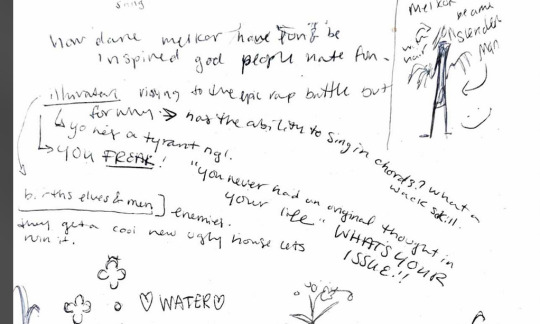 Sing
how dare melkor have fun & be
inspired god people hate fun.
illuvatar rising to the epic rap battle but
for why → has the ability to sing in chords?? what a
wack skill.
↳ yo he's a tyrant ngl.
↳ YOU FREAK! "you never had an original thought in
your life" WHATS YOUR
ISSUE!!
births elves & men] enemies.
they get a cool new ugly house lets
ruin it.
♡ WATER ♡
melkor
became
slender
man